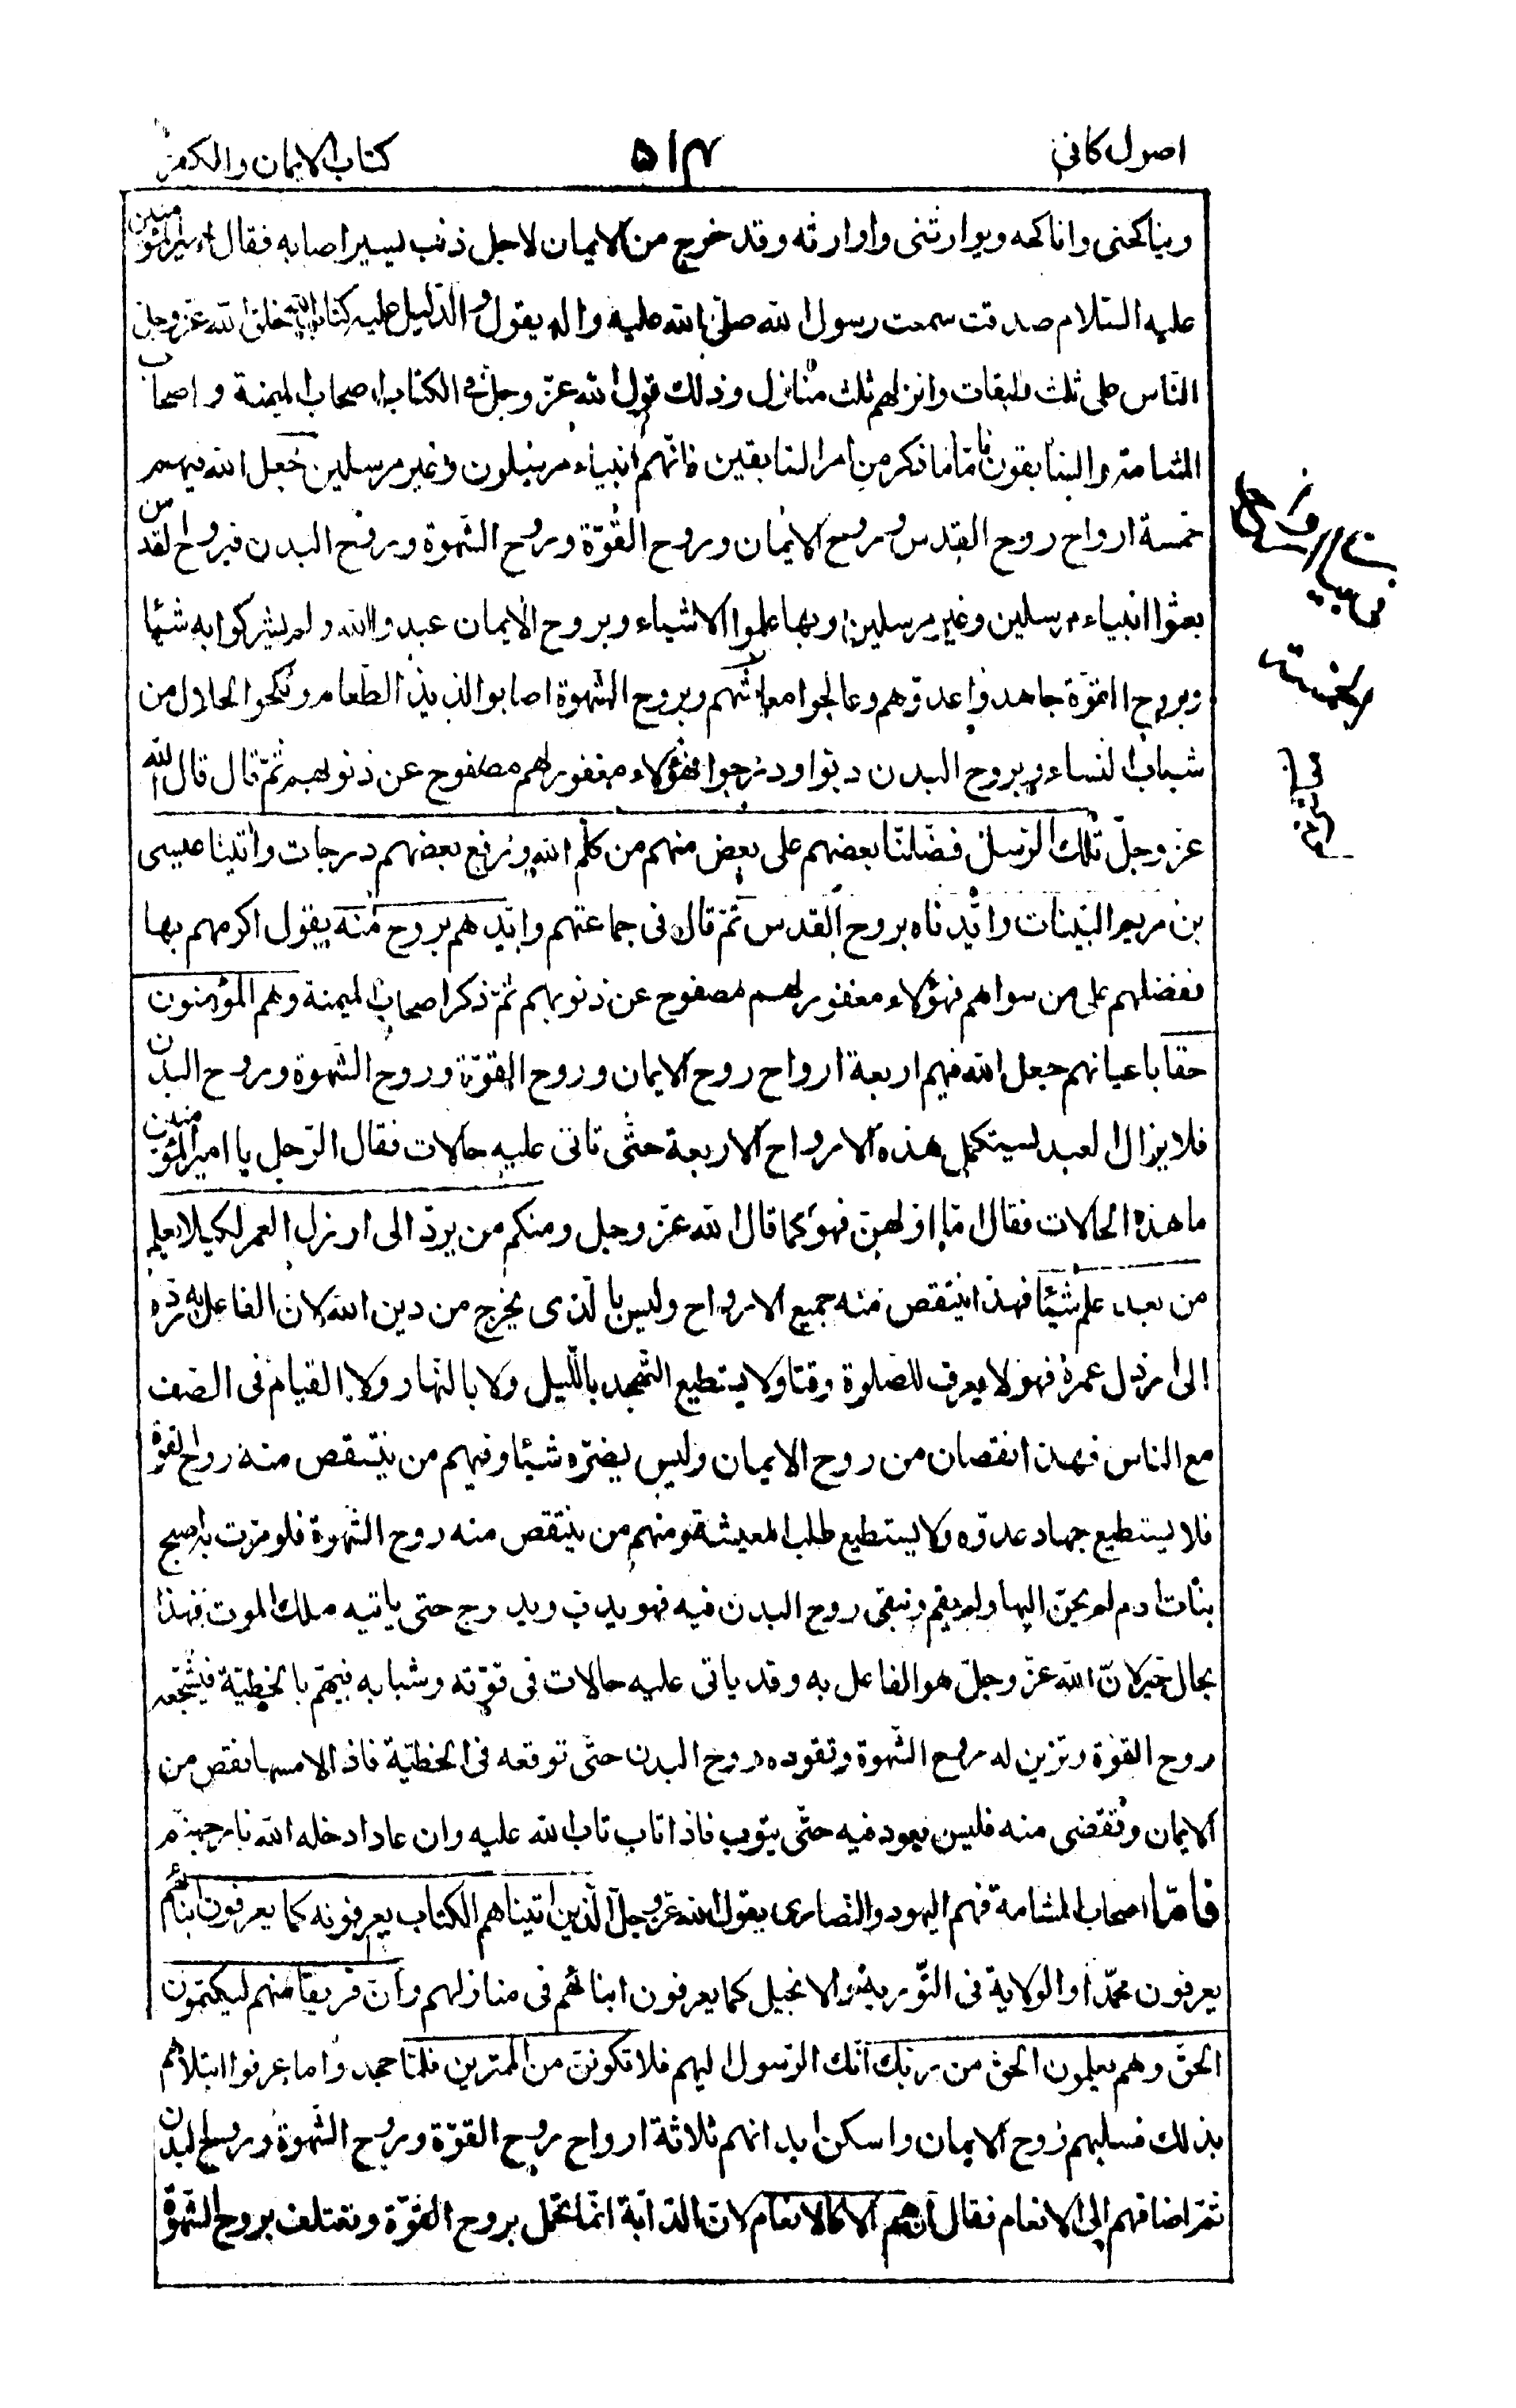 اصول كافي
۵۱۴
كتاب الايمان والكفر
ويناكحني واناكحه ويوارثني واوارثه وقد خرج من الايمان لاجل ذنب يسير اصابه فقال امير المؤمنين
عليه السّلام صدقت سمعت رسول الله صلّى الله عليه واله يقول والدّليل عليه كتاب الله خلق الله عزّ وجلّ
النّاس على ثلث طبقات وانزلهم ثلث منازل وذلك قول الله عزّ وجلّ في الكتاب اصحاب الميمنة واصحاب
المشامة والسابقون فامّا ما ذكر من امر السابقين فانّهم انبياء مرسلون وغير مرسلين جعل الله فيهم
خمسة ارواح روح القدس وروح الايمان وروح القوّة وروح الشّهوة وروح البدن فبروح القدس
بعثوا انبياء مرسلين وغير مرسلين وبها علموا الاشياء وبروح الايمان عبدوا الله ولم يشركوا به شيئا
وبروح القوّة جاهدوا عدوّهم وعالجوا معاشهم وبروح الشّهوة اصابوا لذيذ الطّعام ونكحوا الحلال من
شباب النساء وبروح البدن دبّوا ودرجوا فهؤلاء مغفور لهم مصفوح عن ذنوبهم ثمّ قال قال الله
عزّ وجلّ تلك الرّسل فضّلنا بعضهم على بعض منهم من كلّم الله ورفع بعضهم درجات واتينا عيسى
بن مريم البيّنات وايّدناه بروح القدس ثمّ قال في جماعتهم وايّدهم بروح منه يقول اكرمهم بها
ففضلهم على من سواهم فهؤلاء مغفور لهم مصفوح عن ذنوبهم ثمّ ذكر اصحاب الميمنة وهم المؤمنون
حقا باعيانهم جعل الله فيهم اربعة ارواح روح الايمان وروح القوّة وروح الشّهوة وروح البدن
فلا يزال العبد يستكمل هذه الارواح الاربعة حتّى تاتي عليه حالات فقال الرّجل يا امير المؤمنين
ما هذه الحالات فقال امّا اولهنّ فهو كما قال الله عزّ وجل ومنكم من يردّ الى ارذل العمر لكيلا يعلم
من بعد علم شيئا فهذا ينتقص منه جميع الارواح وليس بالّذي يخرج من دين الله لان الفاعل به ردّه
الى ارذل عمره فهو لا يعرف للصّلوة وقتا ولا يستطيع التّهجد باللّيل ولا بالنّهار ولا القيام في الصّف
مع الناس فهذا نقصان من روح الايمان وليس يضرّه شيئا وفيهم من ينتقص منه روح القوّة
فلا يستطيع جهاد عدوّه ولا يستطيع طلب المعيشة ومنهم من ينتقص منه روح الشّهوة فلو مرّت به اصبح
بنات ادم لم يحنّ اليها ولم يقم وتبقى روح البدن فيه فهو يدبّ ويدرج حتى ياتيه ملك الموت فهذا
بحال خير لانّ الله عزّ وجلّ هو الفاعل به وقد ياتي عليه حالات في قوّته وشبابه فيهمّ بالخطيّة فيشجّعه
روح القوّة وتزين له روح الشّهوة وتقوده روح البدن حتّى توقعه في الخطيّة فاذا لامسها نقص من
الايمان وتفصى منه فليس يعود فيه حتّى يتوب فاذا تاب تاب الله عليه وان عاد ادخله الله نار جهنّم
فامّا اصحاب المشامة فهم اليهود والنّصارى يقول الله عزّ وجلّ الّذين اتيناهم الكتاب يعرفونه كما يعرفون ابنائهم
يعرفون محمّدا والولاية في التّورية والانجيل كما يعرفون ابنائهم في منازلهم وانّ فريقا منهم ليكتمون
الحقّ وهم يعلمون الحقّ من ربّك انّك الرّسول اليهم فلا تكوننّ من الممترين فلمّا جحدوا ما عرفوا ابتلاهم
بذلك فسلبهم روح الايمان واسكن ابدانهم ثلاثة ارواح روح القوّة وروح الشّهوة وروح البدن
ثمّ اضافهم الى الانعام فقال ان هم الا كالانعام لانّ الدّابّة انّما تحمل بروح القوّة وتعتلف بروح الشّهوة